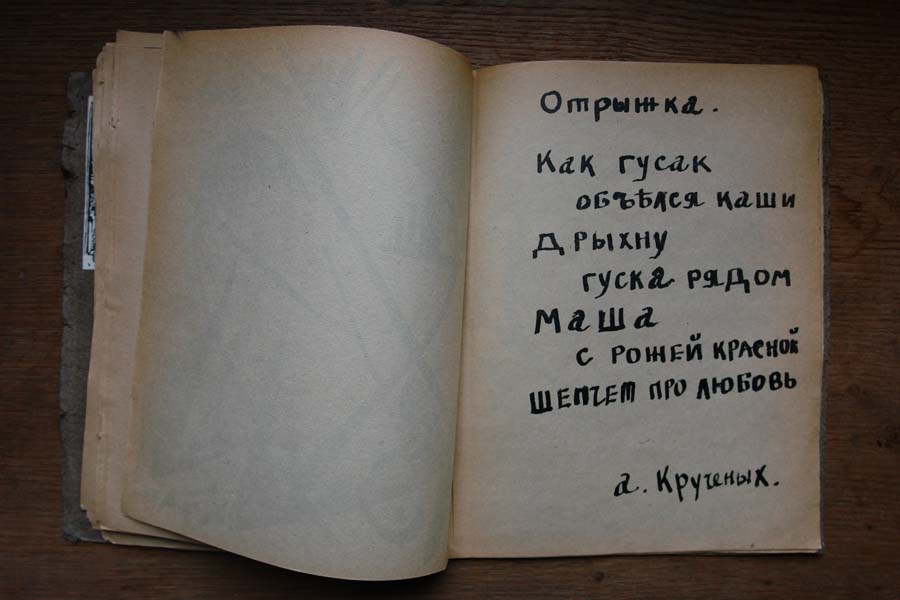 Отрыжка.
Как гусак
объѣлся каши
Дрыхну
гуска рядом
Маша
с рожей красной
шепчет про любовь
а. Крученых.